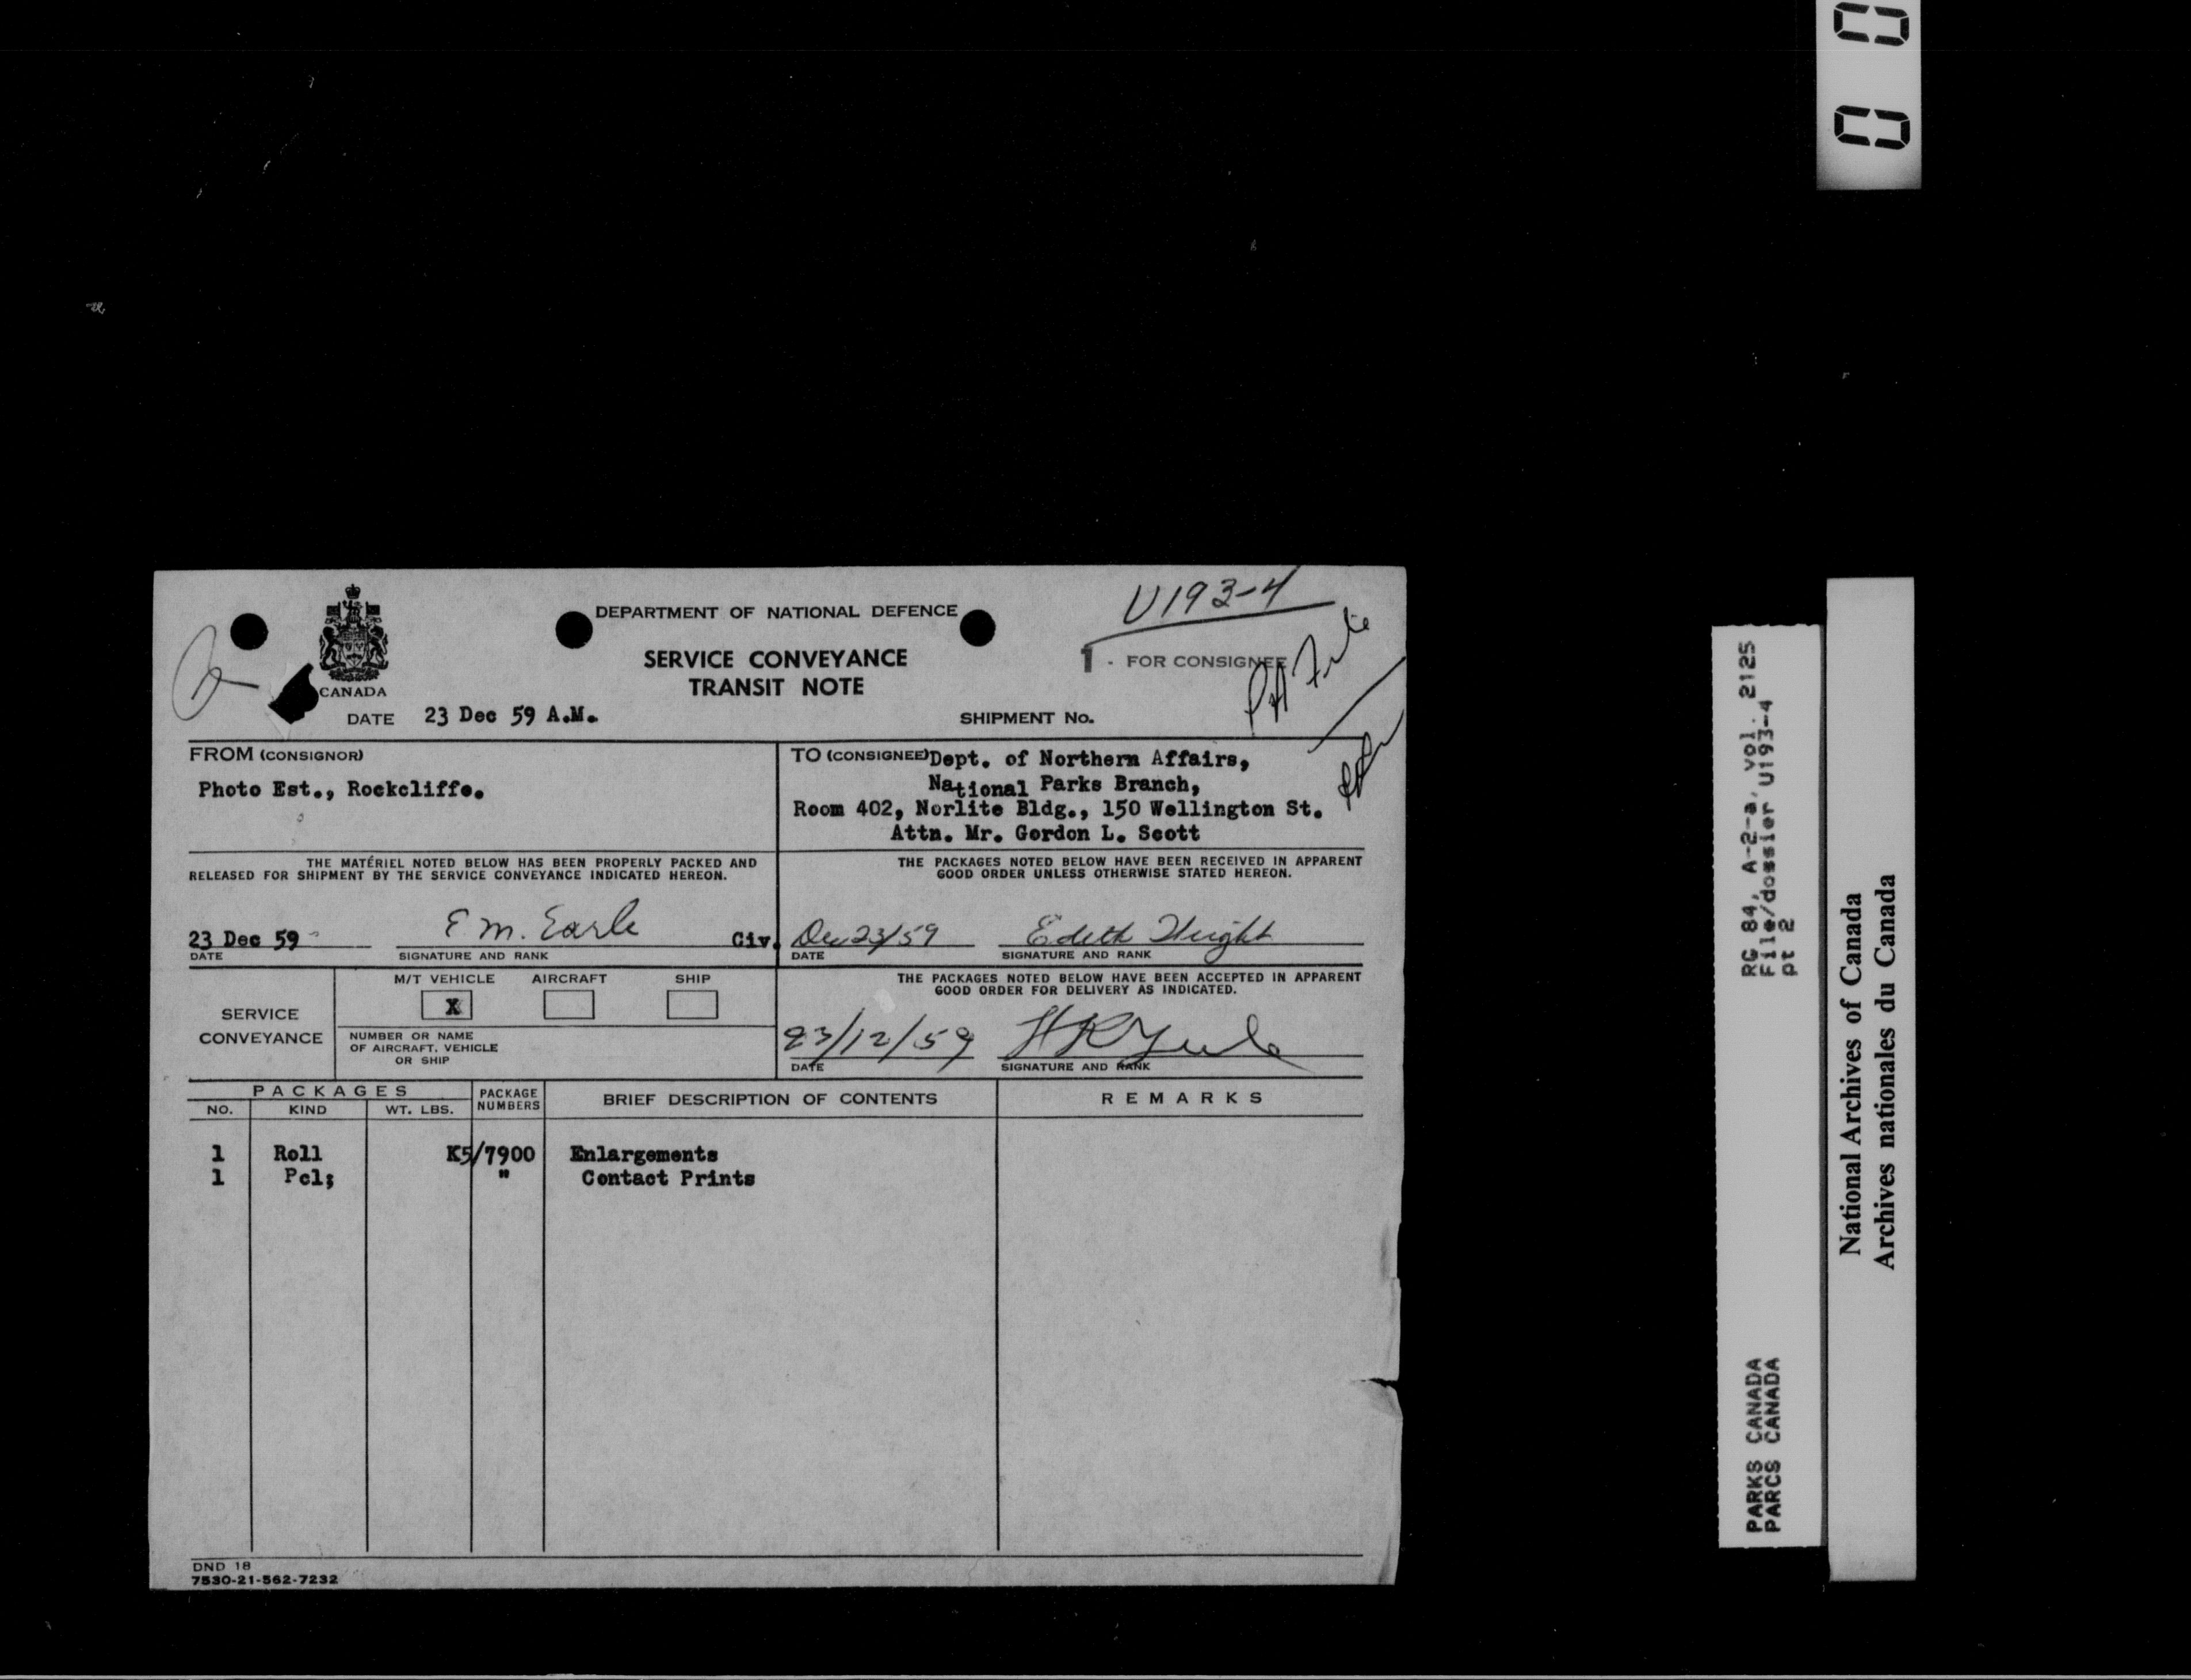 U193-4
DEPARTMENT OF NATIONAL DEFENCE
SERVICE CONVEYANCE
TRANSIT NOTE
1 - FOR CONSIGNEE
CANADA
DATE 23 Dec 59 A.M.
SHIPMENT No.
FROM (CONSIGNOR)
Photo Est., Rockcliffe.
TO (CONSIGNEE) Dept. of Northern Affairs,
National Parks Branch,
Room 402, Norlite Bldg., 150 Wellington St.
Attn. Mr. Gordon L. Scott
THE MATÉRIEL NOTED BELOW HAS BEEN PROPERLY PACKED AND
RELEASED FOR SHIPMENT BY THE SERVICE CONVEYANCE INDICATED HEREON.
23 Dec 59 E M. Earle Civ.
DATE SIGNATURE AND RANK
THE PACKAGES NOTED BELOW HAVE BEEN RECEIVED IN APPARENT
GOOD ORDER UNLESS OTHERWISE STATED HEREON.
Dec 23/59 Edith
DATE SIGNATURE AND RANK
SERVICE
CONVEYANCE
M/T VEHICLE AIRCRAFT SHIP
X
NUMBER OR NAME
OF AIRCRAFT, VEHICLE
OR SHIP
THE PACKAGES NOTED BELOW HAVE BEEN ACCEPTED IN APPARENT
GOOD ORDER FOR DELIVERY AS INDICATED.
23/12/59
DATE SIGNATURE AND RANK
PACKAGES
NO. KIND WT. LBS.
PACKAGE
NUMBERS
BRIEF DESCRIPTION OF CONTENTS
REMARKS
1 Roll K5/7900 Enlargements
1 Pcl; " Contact Prints
DND 18
7530-21-562-7232
RG 84, A-2-a, vol. 2125
File/dossier U193-4
pt 2
PARKS CANADA
PARCS CANADA
National Archives of Canada
Archives nationales du Canada